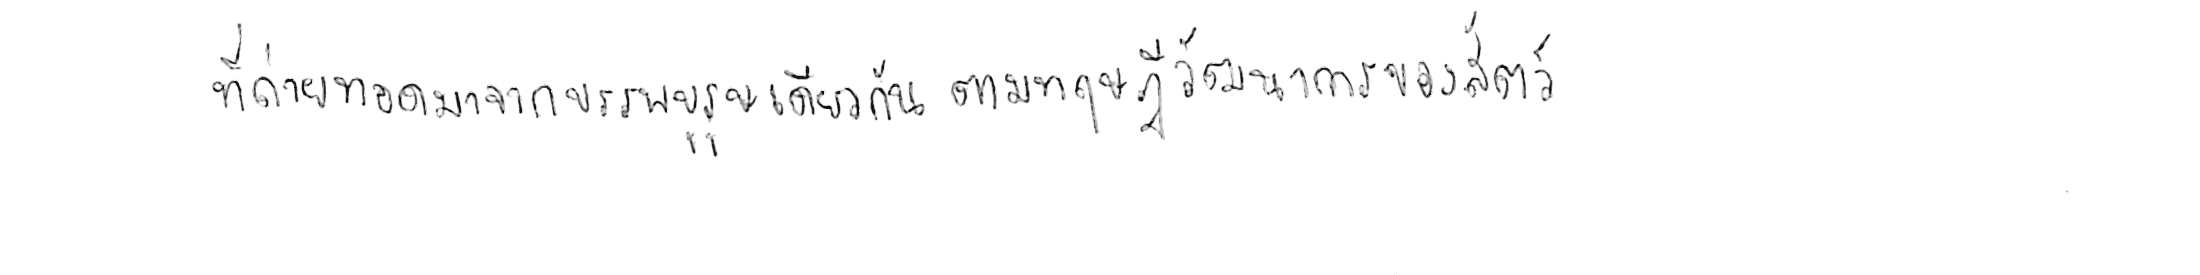 ที่ถ่ายทอดมาจากบรรพบุรุษเดียวกัน ตามทฤษฎีวัฒนาการของสัตว์